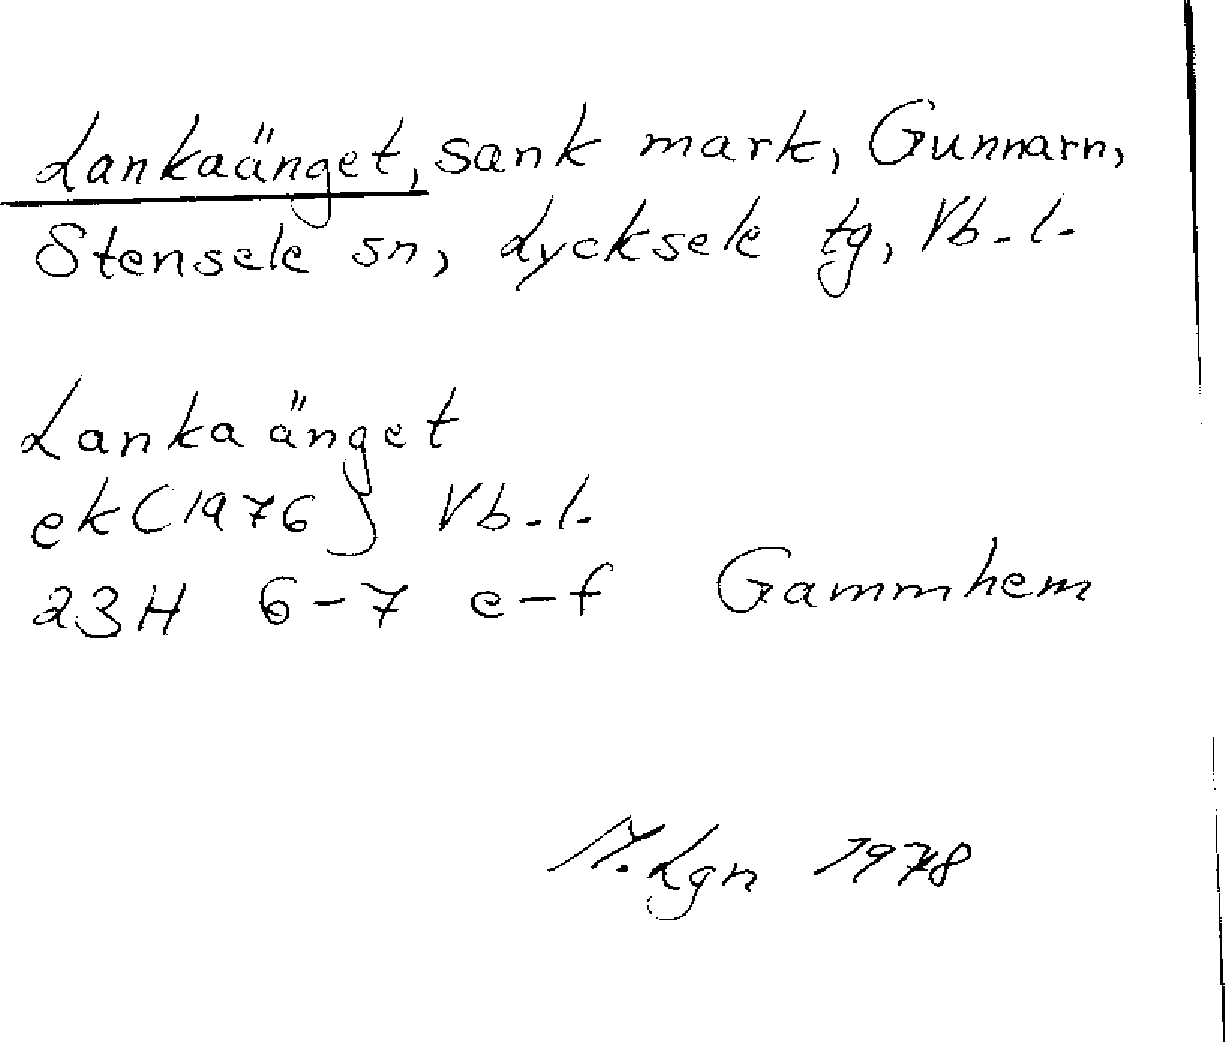 Lankaänget, sank mark, Gunnarn,
Stensele sn, Lycksele tg, Vb.l.
Lankaänget
ek (1976) Vb.l.
23H 6-7 e-f Gammhem
Lgn 1978